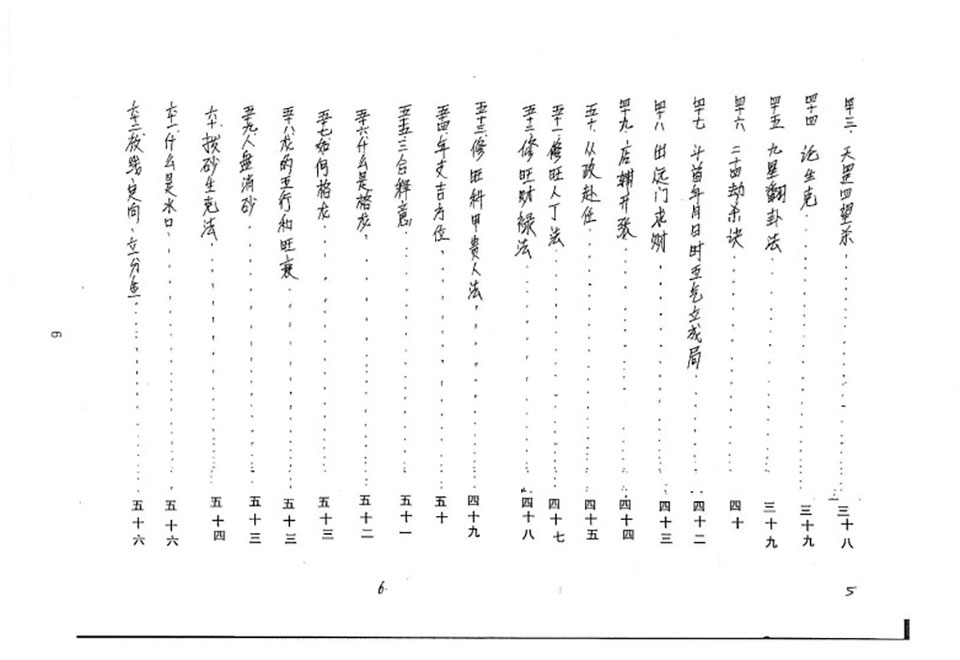 四十三、天罡四望杀……三十八
四十四 论生克……三十九
四十五 九星翻卦法……三十九
四十六 二十四劫杀诀……四十
四十七 斗首年月日时五气立成局……四十二
四十八 出远门求财……四十三
四十九 店铺开张……四十四
五十、从政赴任……四十五
五十一、修旺人丁法……四十七
五十二、修旺财禄法……四十八
5
五十三、修旺科甲贵人法……四十九
五十四 年支吉方位……五十
五十五 三合释意……五十一
五十六 什么是格龙……五十二
五十七 如何格龙……五十三
五十八 龙的五行和旺衰……五十三
五十九 人盘消砂……五十三
六十、拨砂生克法……五十四
六十一、什么是水口……五十六
六十二、放线定向、立分金……五十六
6
6